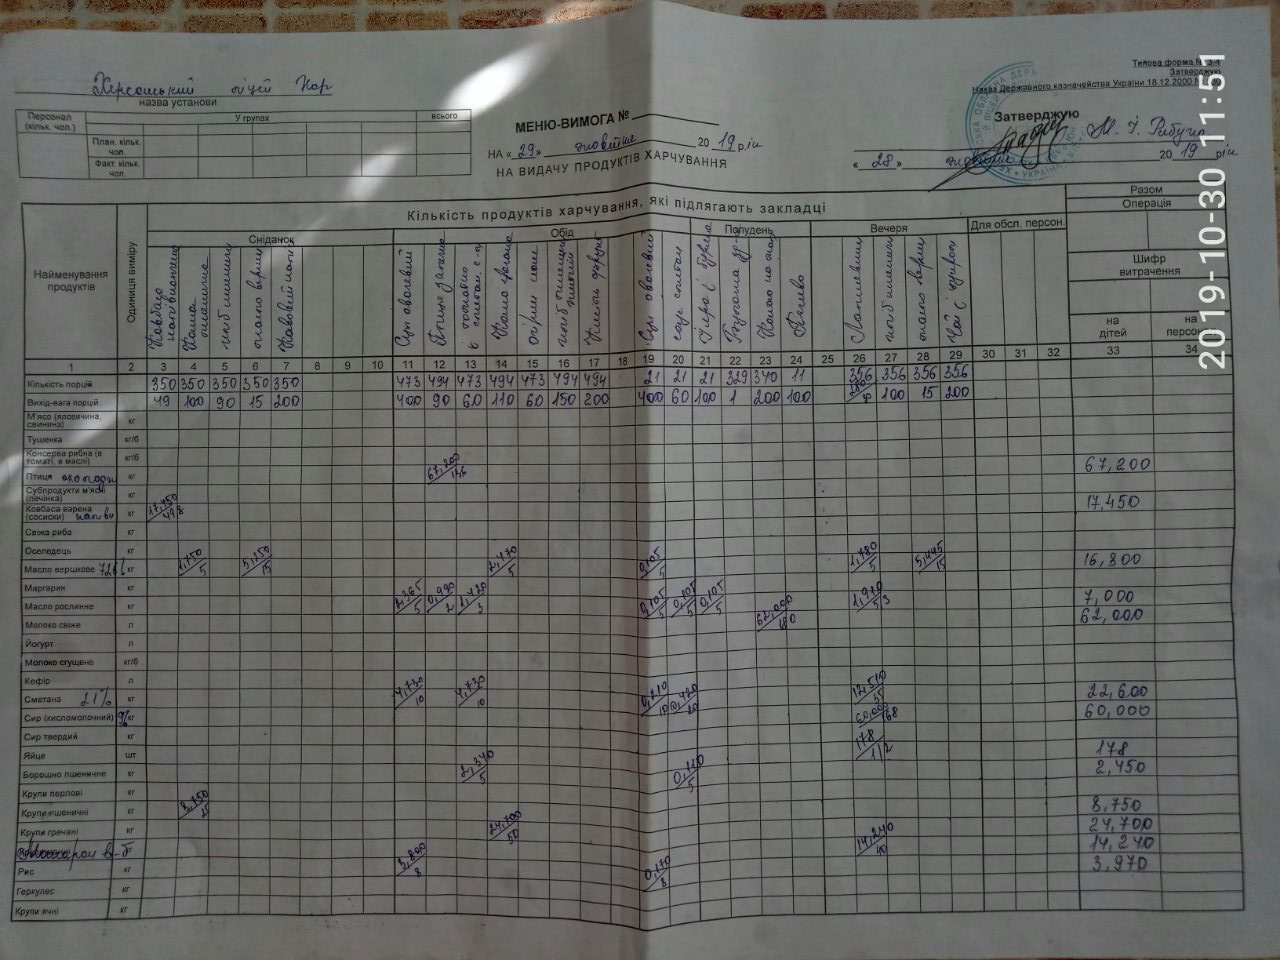 Типова форма № 3-4
Затверджую
Наказ Державного казначейства України 18.12.2000 №
Херсонський ліцей
назва установи
Персонал (кільк. чол.)
У групах
всього
План. кільк. чол.
Факт. кільк. чол.
МЕНЮ-ВИМОГА №
НА «29» жовтня 2019 рік
НА ВИДАЧУ ПРОДУКТІВ ХАРЧУВАННЯ
Затверджую
«28» 2019 рік
2019-10-30 11:51
Найменування продуктів
Одиниця виміру
Кількість продуктів харчування, які підлягають закладці
Разом
Операція
Шифр витрачення
на дітей
на персонал
Сніданок
Обід
Полудень
Вечеря
Для обсл. персон.
Ковбаса
Каша пшенична
хліб пшеничн
масло вершк
Кавовий напій
Суп овочевий
Птиця
Каша гречана
Суп овочевий
соус сметан
Какао на мол
Печиво
хліб пшеничн
масло вершк
Чай з цукром
1 2 3 4 5 6 7 8 9 10 11 12 13 14 15 16 17 18 19 20 21 22 23 24 25 26 27 28 29 30 31 32 33 34
Кількість порцій 350 350 350 350 350 473 494 473 494 473 494 494 21 21 21 329 340 11 356 356 356 356
Вихід-вага порцій 49 100 90 15 200 400 90 60 110 60 150 200 400 60 100 1 200 100 100 15 200
М'ясо (яловичина, свинина) кг
Тушенка кг/б
Консерва рибна (в томаті, в маслі) кг/б
Птиця кг 67,200/136 67,200
Субпродукти м'ясні (печінка) кг
Ковбаса варена (сосиски) кг 17,450/49,8 17,450
Свіжа риба кг
Оселедець кг
Масло вершкове 72,6% кг 1,750/5 5,250/15 2,470/5 0,105/5 1,780/5 5,445/15 16,800
Маргарин кг
Масло рослинне кг 2,365/5 0,990/2 1,420/3 0,105/5 0,105/5 0,105/5 1,910/5,3 7,000
Молоко свіже л 62,000/180 62,000
Йогурт л
Молоко сгущене кг/б
Кефір л
Сметана 21% кг 4,730/10 4,730/10 0,210/10 0,420/20 12,510/35 22,600
Сир (кисломолочний) 9% кг 60,000/168 60,000
Сир твердий кг
Яйце шт 178/1/2 178
Борошно пшеничне кг 2,340/5 0,110/5 2,450
Крупи перлові кг
Крупи пшеничні кг 8,750/25 8,750
Крупи гречані кг 24,700/50 24,700
Макарон в-б кг 14,240/40 14,240
Рис кг 3,800/8 0,170/8 3.970
Геркулес кг
Крупи ячні кг